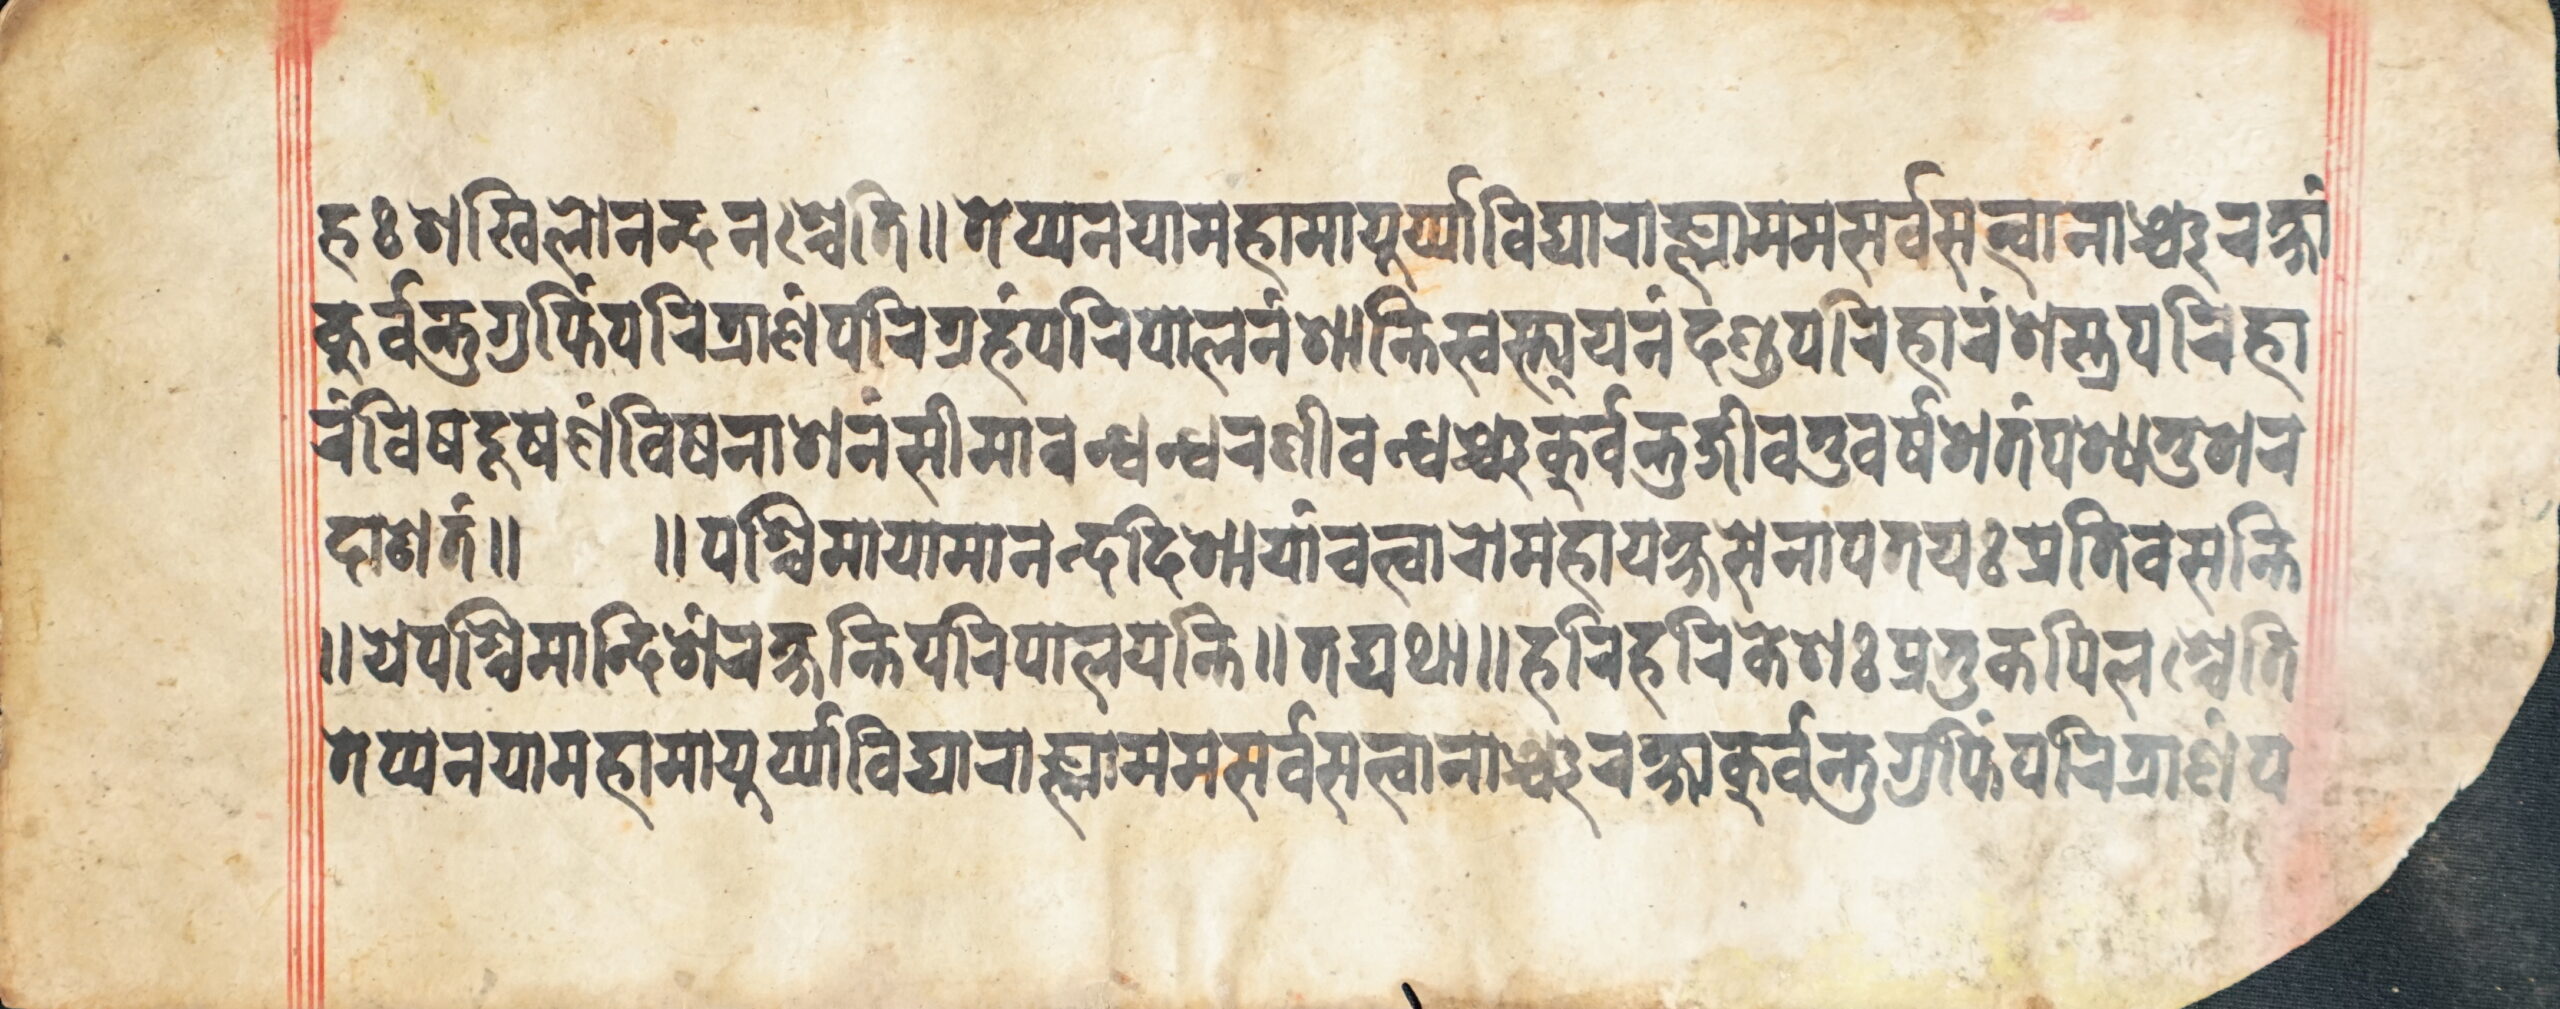 हः शखिलोनन्दनश्चेति॥ तेप्यनयामहामायूर्य्याविद्याराज्ञ्यामम सर्वसत्त्वानाञ्च रक्षां
कुर्वन्तु गुप्तिं परित्राणं परिग्रहं परिपालनं शान्तिस्वस्त्ययनं दण्डपरिहारं शस्त्रपरिहा
रं विषदूषणं विषनाशनं सीमाबन्धन्धरणीबन्धञ्च कुर्वन्तु जीवतु वर्षशतं पश्यतु शर
दाशतं॥ ॥ पश्चिमायामानन्ददिशायां चत्वारो महायक्षसेनापतयः प्रतिवसन्ति
॥ ये पश्चिमान्दिशं रक्षन्ति परिपालयन्ति॥ तद्यथा॥ हरि हरिकेशः प्रभु कपिलश्चेति
तेप्यनयामहामायूर्य्याविद्याराज्ञ्यामम सर्वसत्त्वानाञ्च रक्षा कुर्वन्तु गुप्तिं परित्राणं प